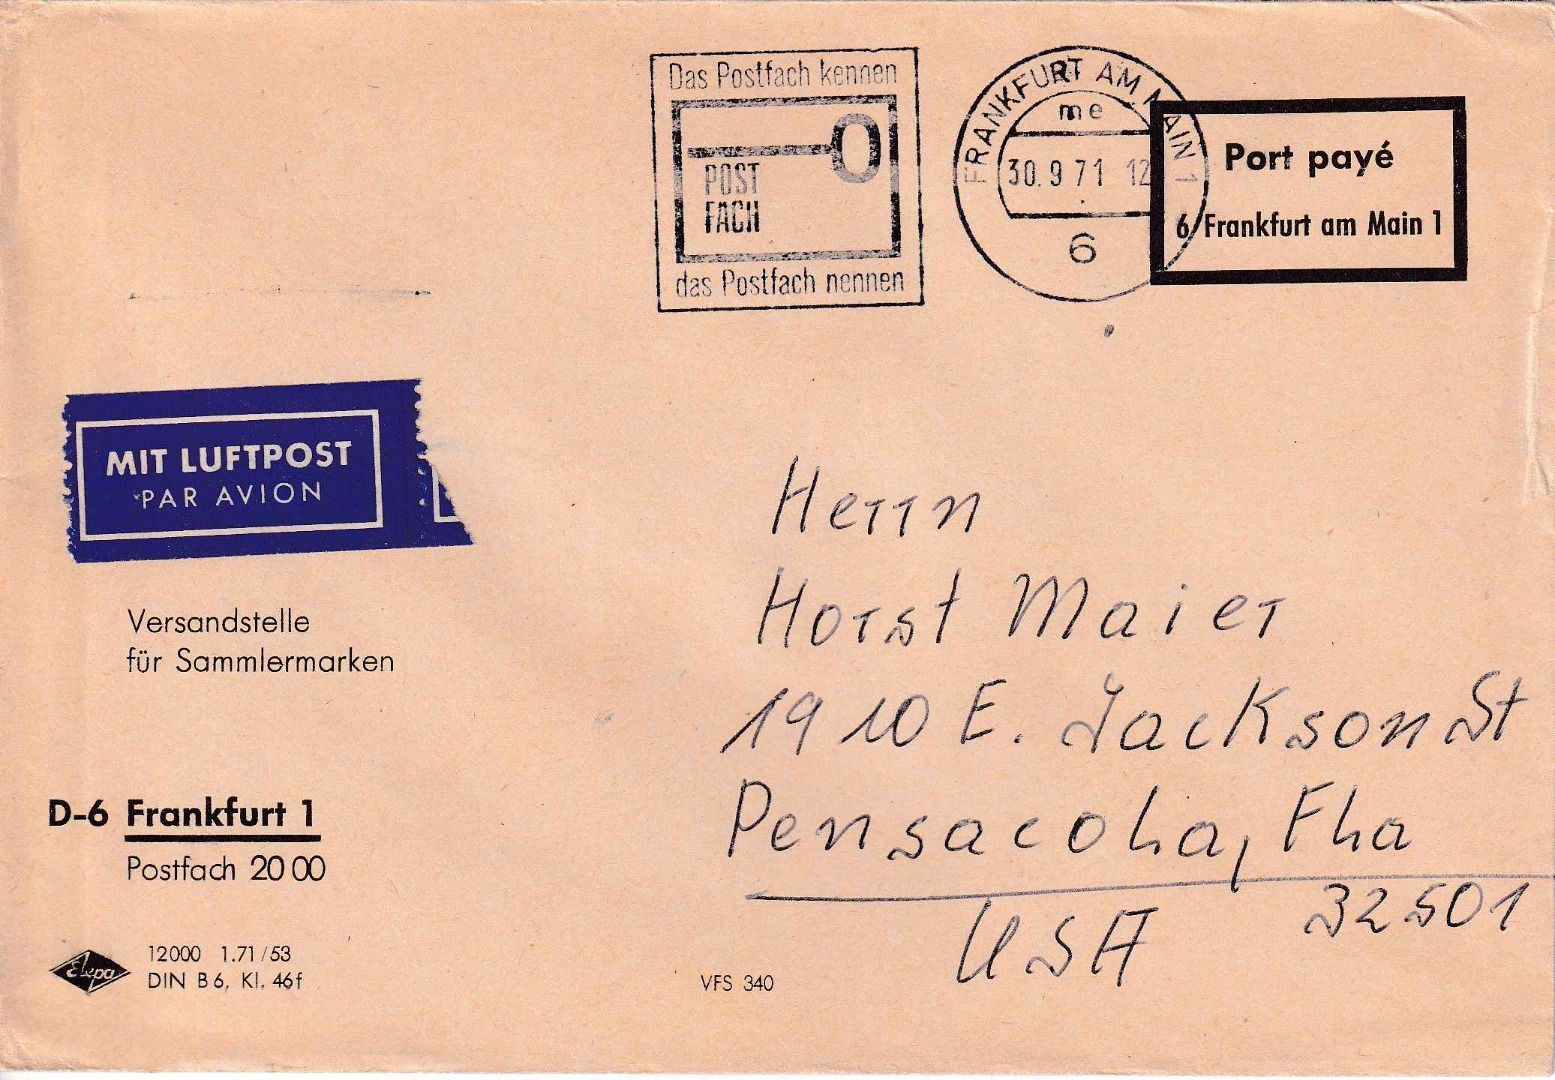 Das Postfach kennen
POST
FACH
das Postfach nennen
FRANKFURT AM MAIN 1
me
30.9.71 12
6
Port payé
6 Frankfurt am Main 1
MIT LUFTPOST
PAR AVION
Versandstelle
für Sammlermarken
D-6 Frankfurt 1
Postfach 20 00
Elepa
12000 1.71/53
DIN B 6, Kl. 46f
VFS 340
Herrn
Horst Maier
1910 E. Jackson St
Pensacola, Fla
32501
USA